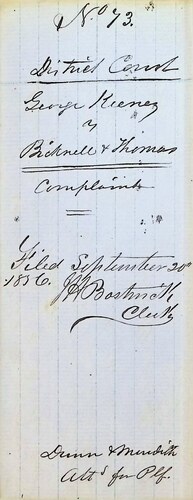 No 73.
District Court
George Keeney
vs
Bicknell & Thomas
Complaint
Filed September 20th
1856.
Bostwick
Clerk
Dunn & Meredith
Atts for Plf.